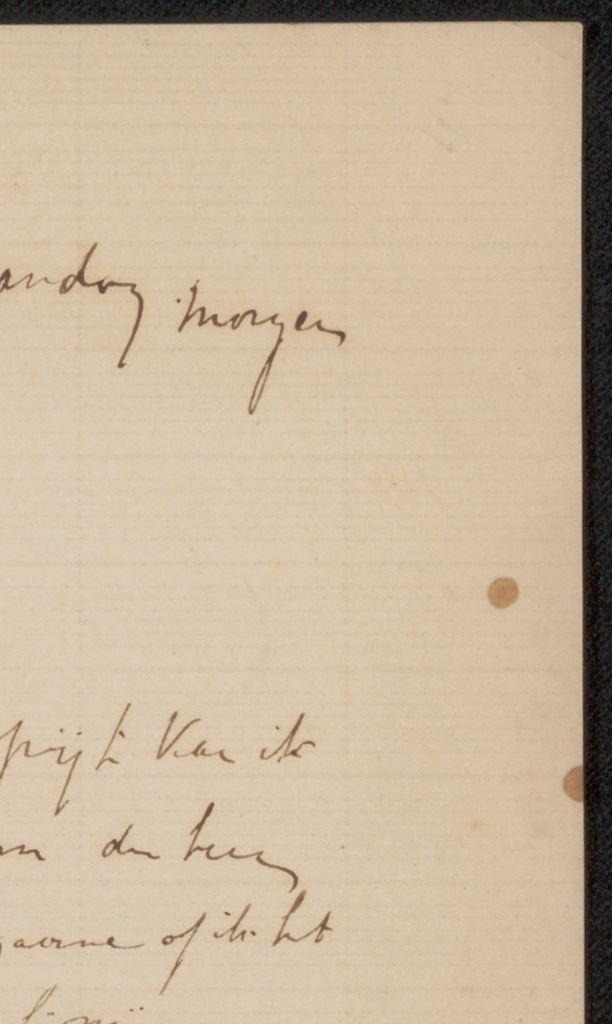 andag morgen
spijt kan ik
den heer
gaarne of ik het